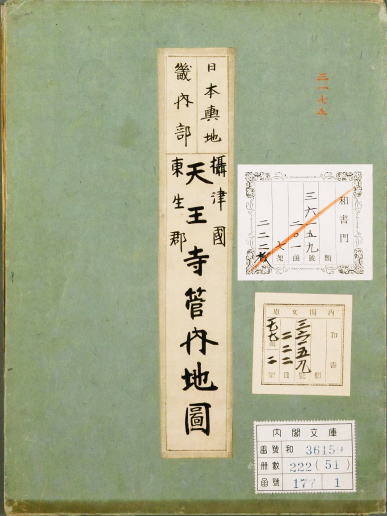 日本輿地
畿内部
攝津國
東生郡
天王寺管内地圖
三一七五
和書門
三六一五九
二〇一
七
二二二
類
號
函
架
内閣文庫
和書
三六一五九
二二二
一七七
二
内閣文庫
番號 和 36159
冊數 222(51)
函號 177 1